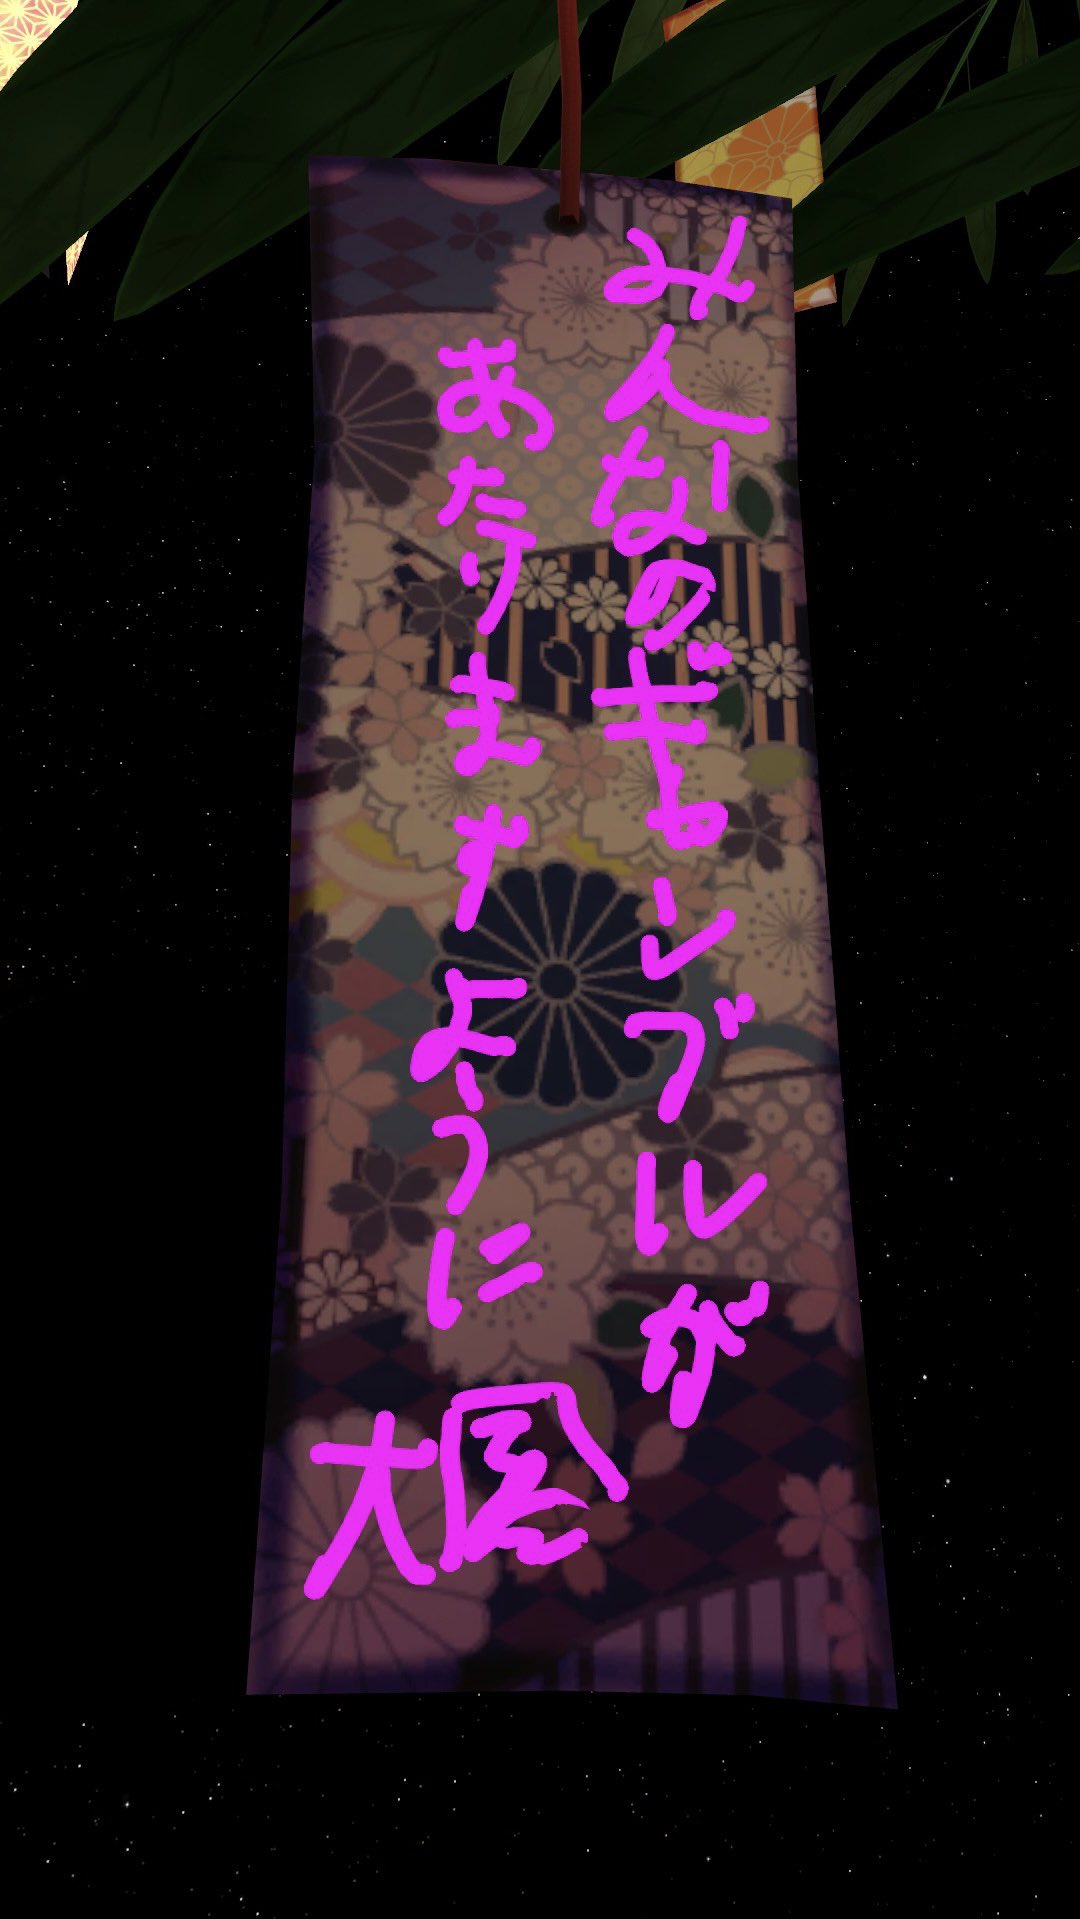 みんなのギャンブルが
あたりますように
大